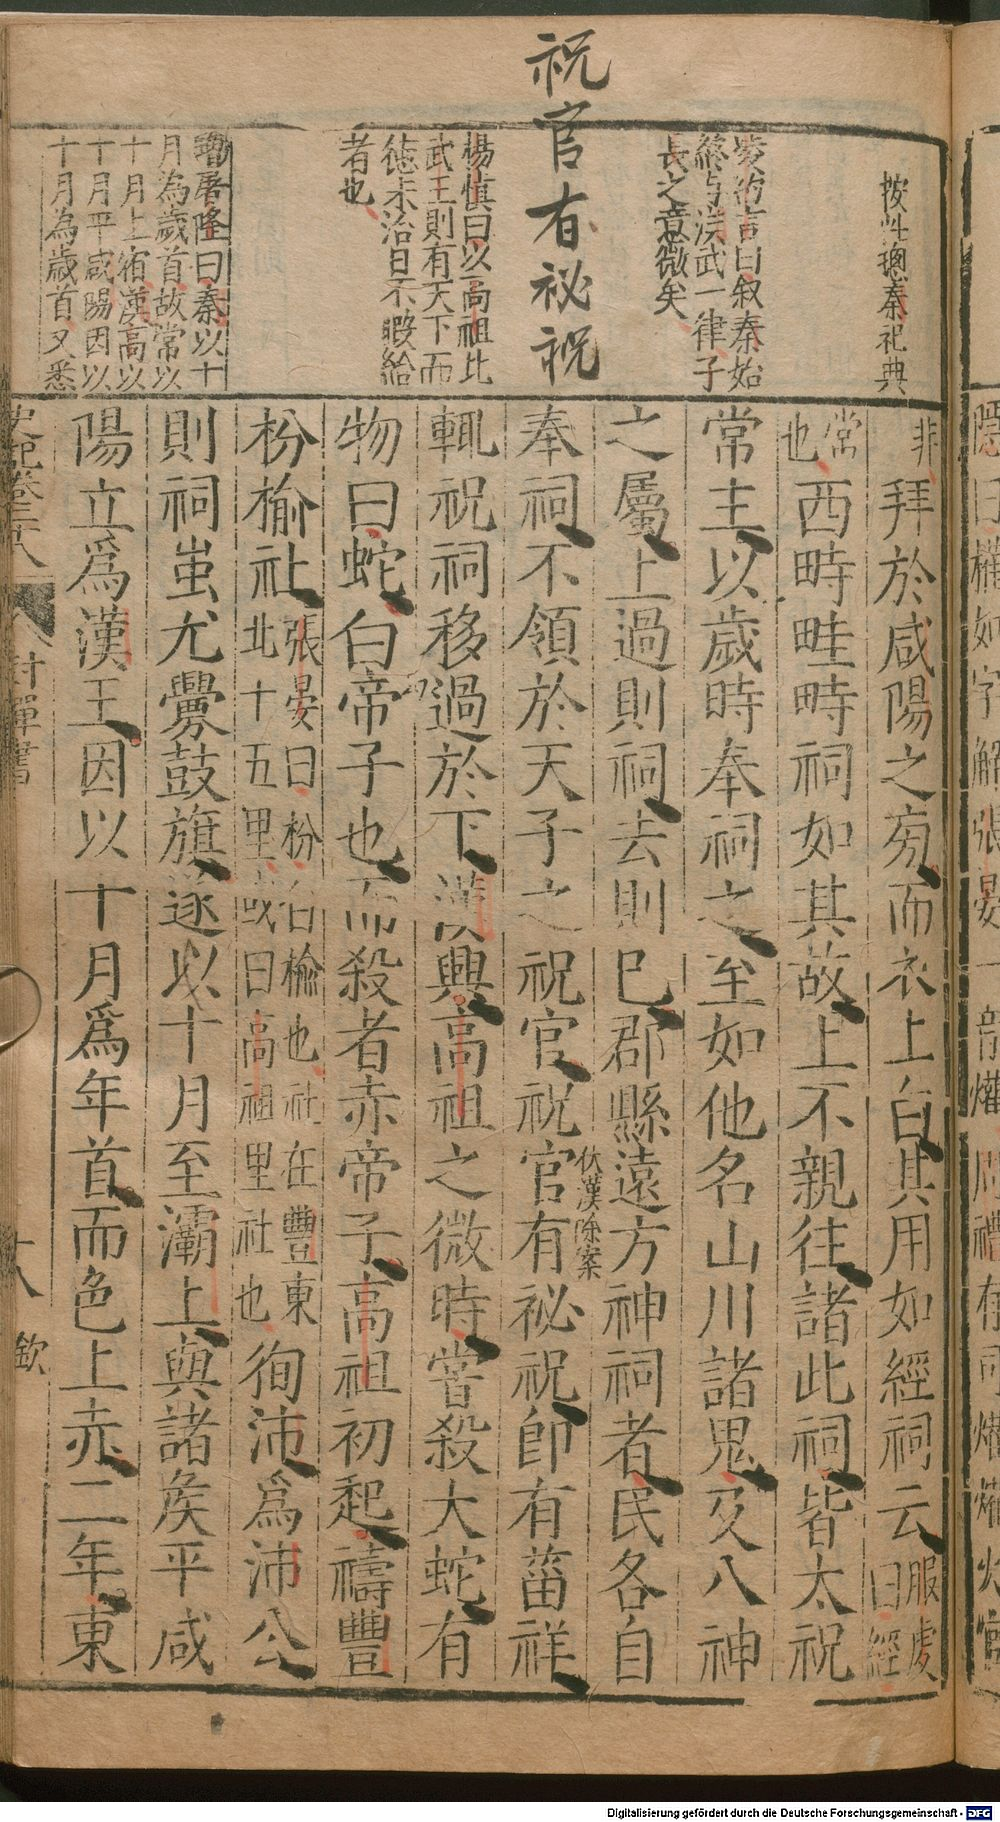 祝官有祕祝
按此總秦祀典
凌約言曰叙秦始
終与漢武一律子
長之意微矣
楊慎曰以高祖比
武王則有天下而
德未洽日不暇給
者也
增屠隆曰秦以十
月為歲首故常以
十月上宿漢高以
十月平咸陽因以
十月為歲首又悉
非拜於咸陽之旁而衣上白其用如經祠云服虔曰經
常也西畤畦畤祠如其故上不親往諸此祠皆太祝
常主以歲時奉祠之至如他名山川諸鬼及八神
之屬上過則祠去則已郡縣遠方神祠者民各自
奉祠不領於天子之祝官祝官有祕祝即有菑祥
伏漢除案
輒祝祠移過於下漢興高祖之微時嘗殺大蛇有
物曰蛇白帝子也而殺者赤帝子高祖初起禱豐
枌榆社張晏曰枌白榆也社在豐東北十五里或曰高祖里社也徇沛為沛公
則祠蚩尤釁鼓旗遂以十月至灞上與諸侯平咸
陽立爲漢王因以十月爲年首而色上赤二年東
史記卷二十八
封禪書
十八
欽
Digitalisierung gefördert durch die Deutsche Forschungsgemeinschaft - DFG